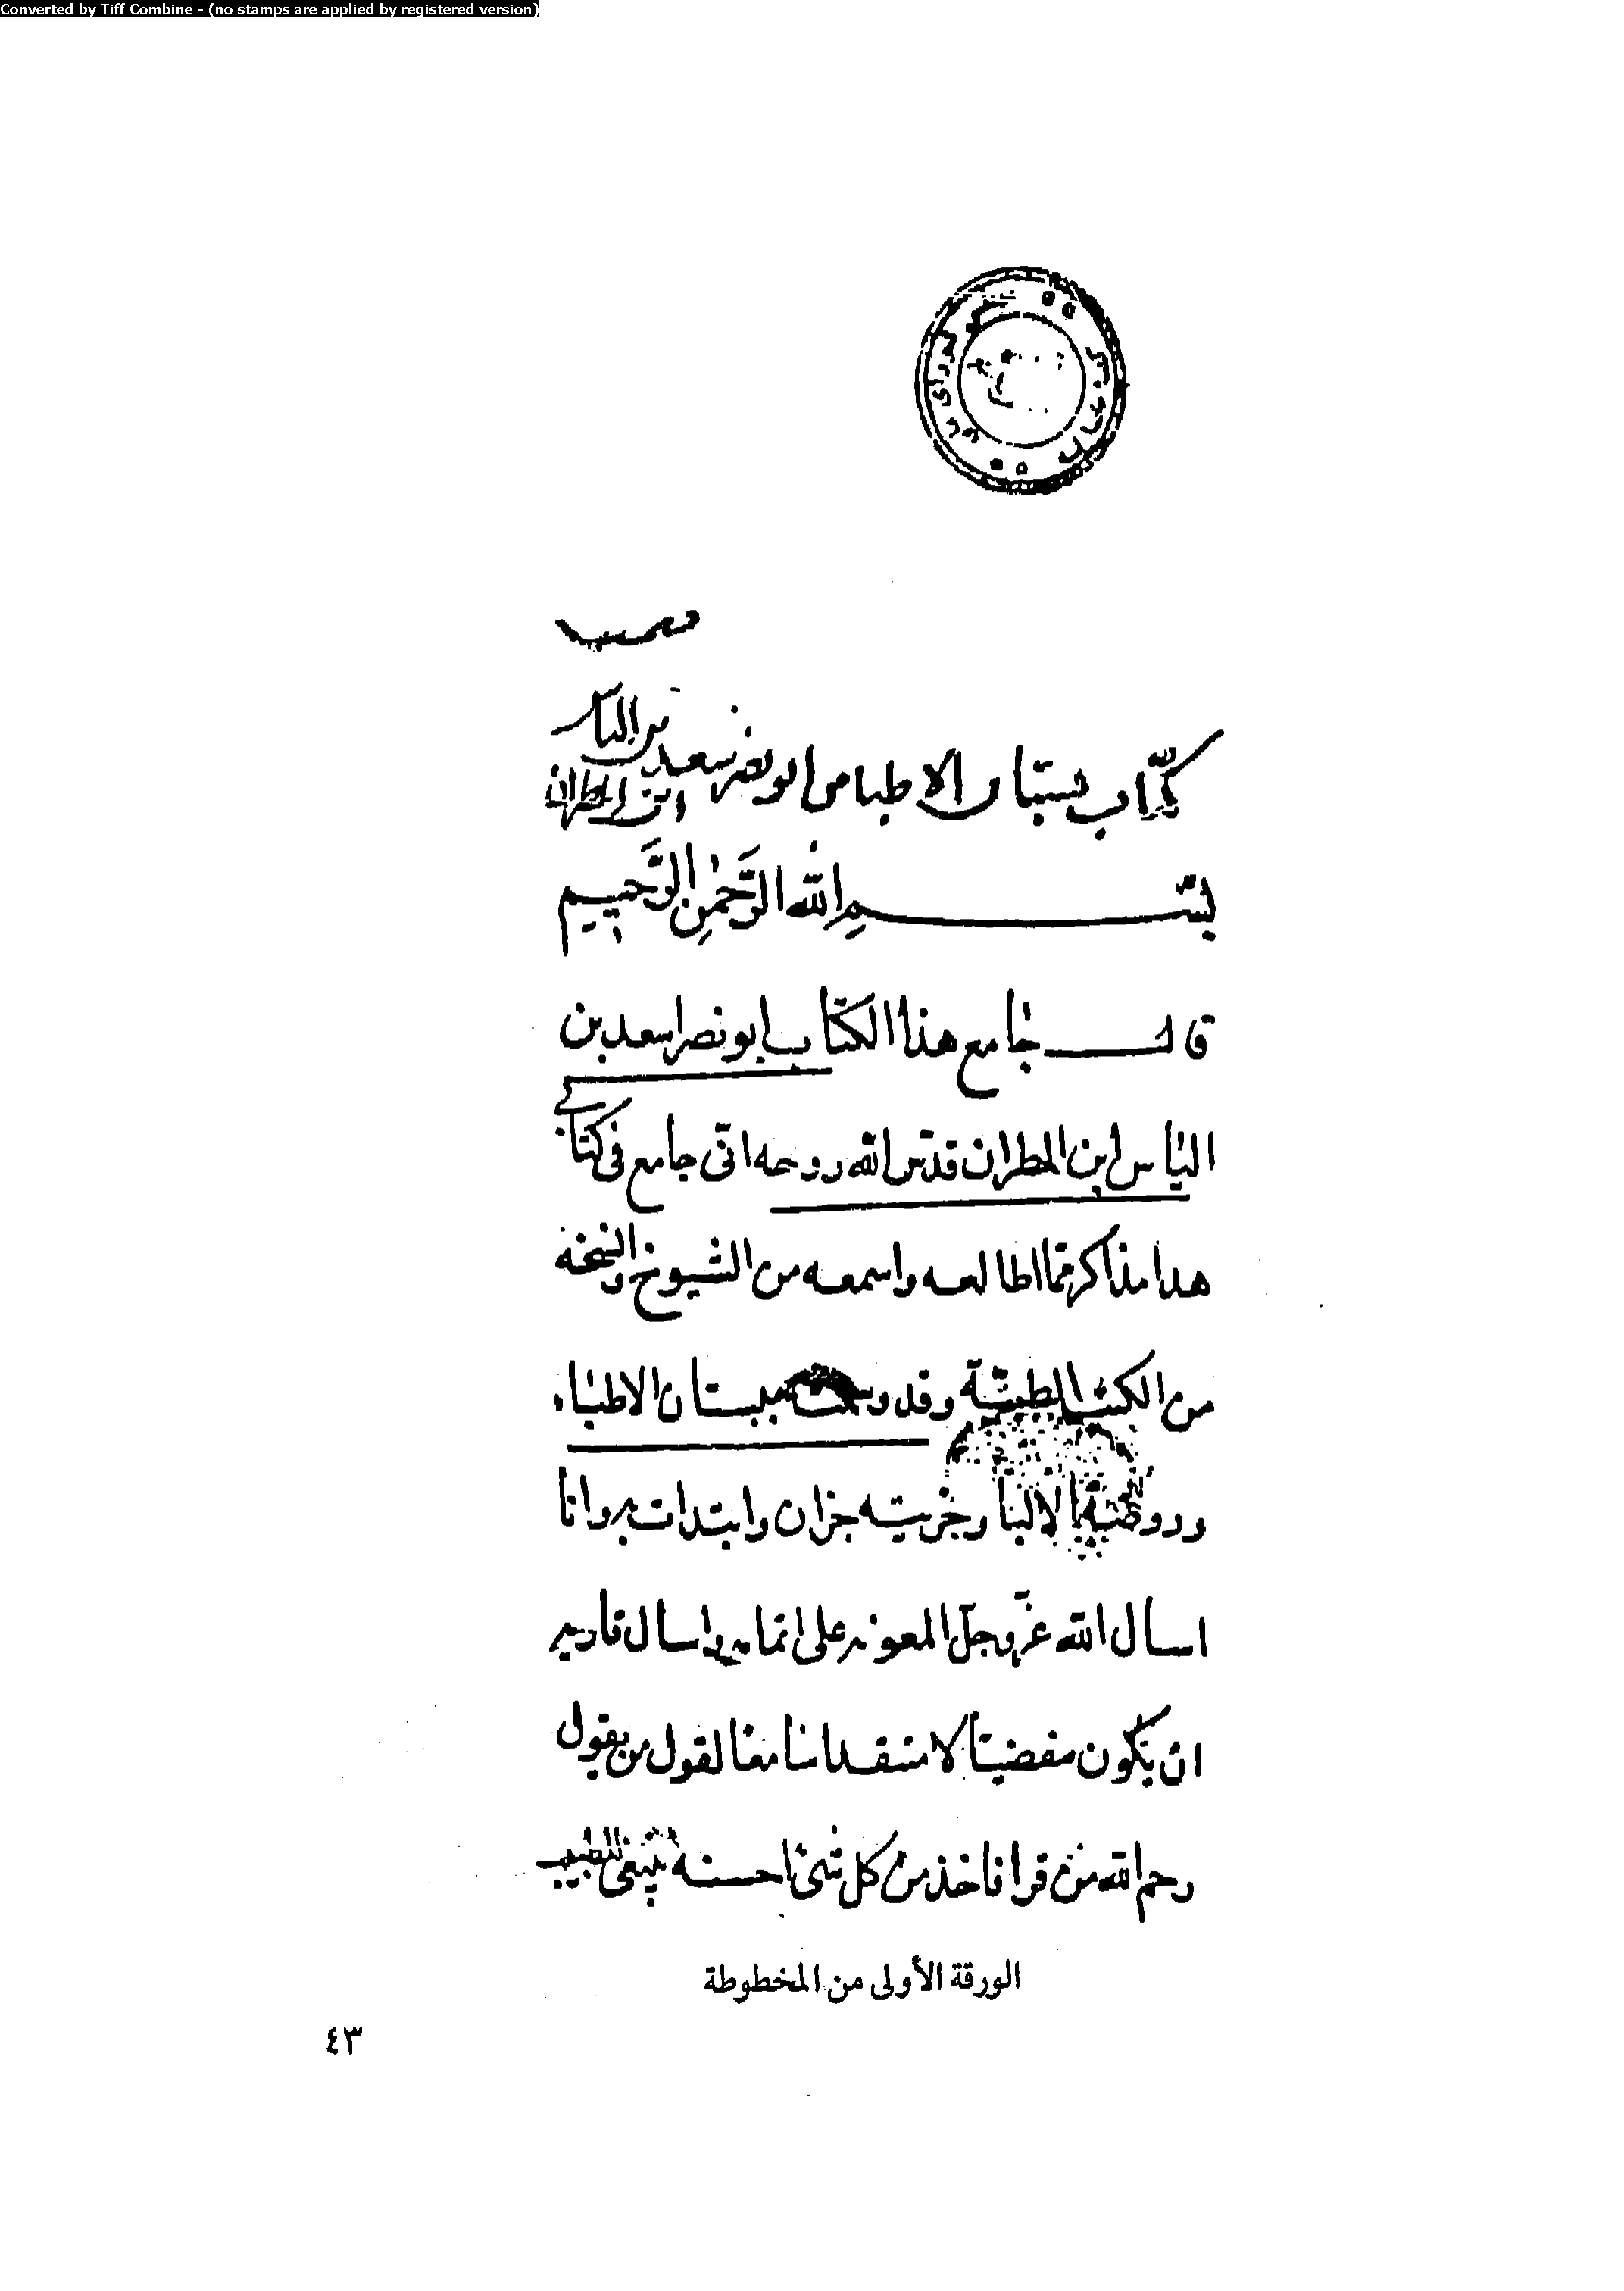 Converted by Tiff Combine - (no stamps are applied by registered version)
كتاب بستان الاطبا من ابو نصر سعد بن الياس
ابن المطران
بسم الله الرحمن الرحيم
قال جامع هذا الكتاب ابو نصر اسعد بن
الياس ابن المطران قدس الله روحه انى جامع فى كتابى
هذا مذاكرة مما اطالعه واسمعه من الشيوخ وانسخه
من الكتب الطبية وقد وسمته ببستان الاطباء
وروضة الالبا وجزيته جزان وابتدات به وانا
اسال الله عز وجل المعونه على اتمامه واسال قاريه
ان يكون مغضيا لا منتقدا سامعا لقول من يقول
رحم الله من قرا فاخذ من كل شئ احسنه ينبغى للطبيب
الورقة الأولى من المخطوطة
٤٣